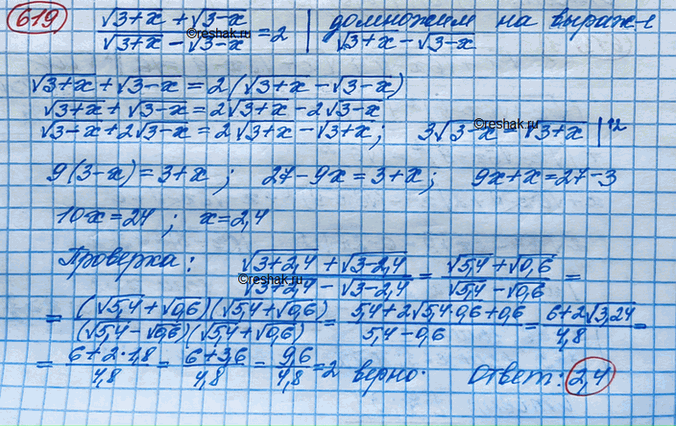 619 (√3+x + √3-x)/(√3+x - √3-x) = 2 | домножим на выраж-е
√3+x - √3-x
√3+x + √3-x = 2(√3+x - √3-x)
√3+x + √3-x = 2√3+x - 2√3-x
√3-x + 2√3-x = 2√3+x - √3+x; 3√3-x = √3+x |^2
9(3-x) = 3+x; 27-9x = 3+x; 9x+x = 27-3
10x = 24; x = 2,4
Проверка: (√3+2,4 + √3-2,4)/(√3+2,4 - √3-2,4) = (√5,4 + √0,6)/(√5,4 - √0,6) =
= (√5,4 + √0,6)(√5,4 + √0,6)/(√5,4 - √0,6)(√5,4 + √0,6) = (5,4 + 2√5,4·0,6 + 0,6)/(5,4 - 0,6) = (6 + 2√3,24)/4,8 =
= (6 + 2·1,8)/4,8 = (6 + 3,6)/4,8 = 9,6/4,8 = 2 верно. Ответ: 2,4
©reshak.ru
©reshak.ru
©reshak.ru